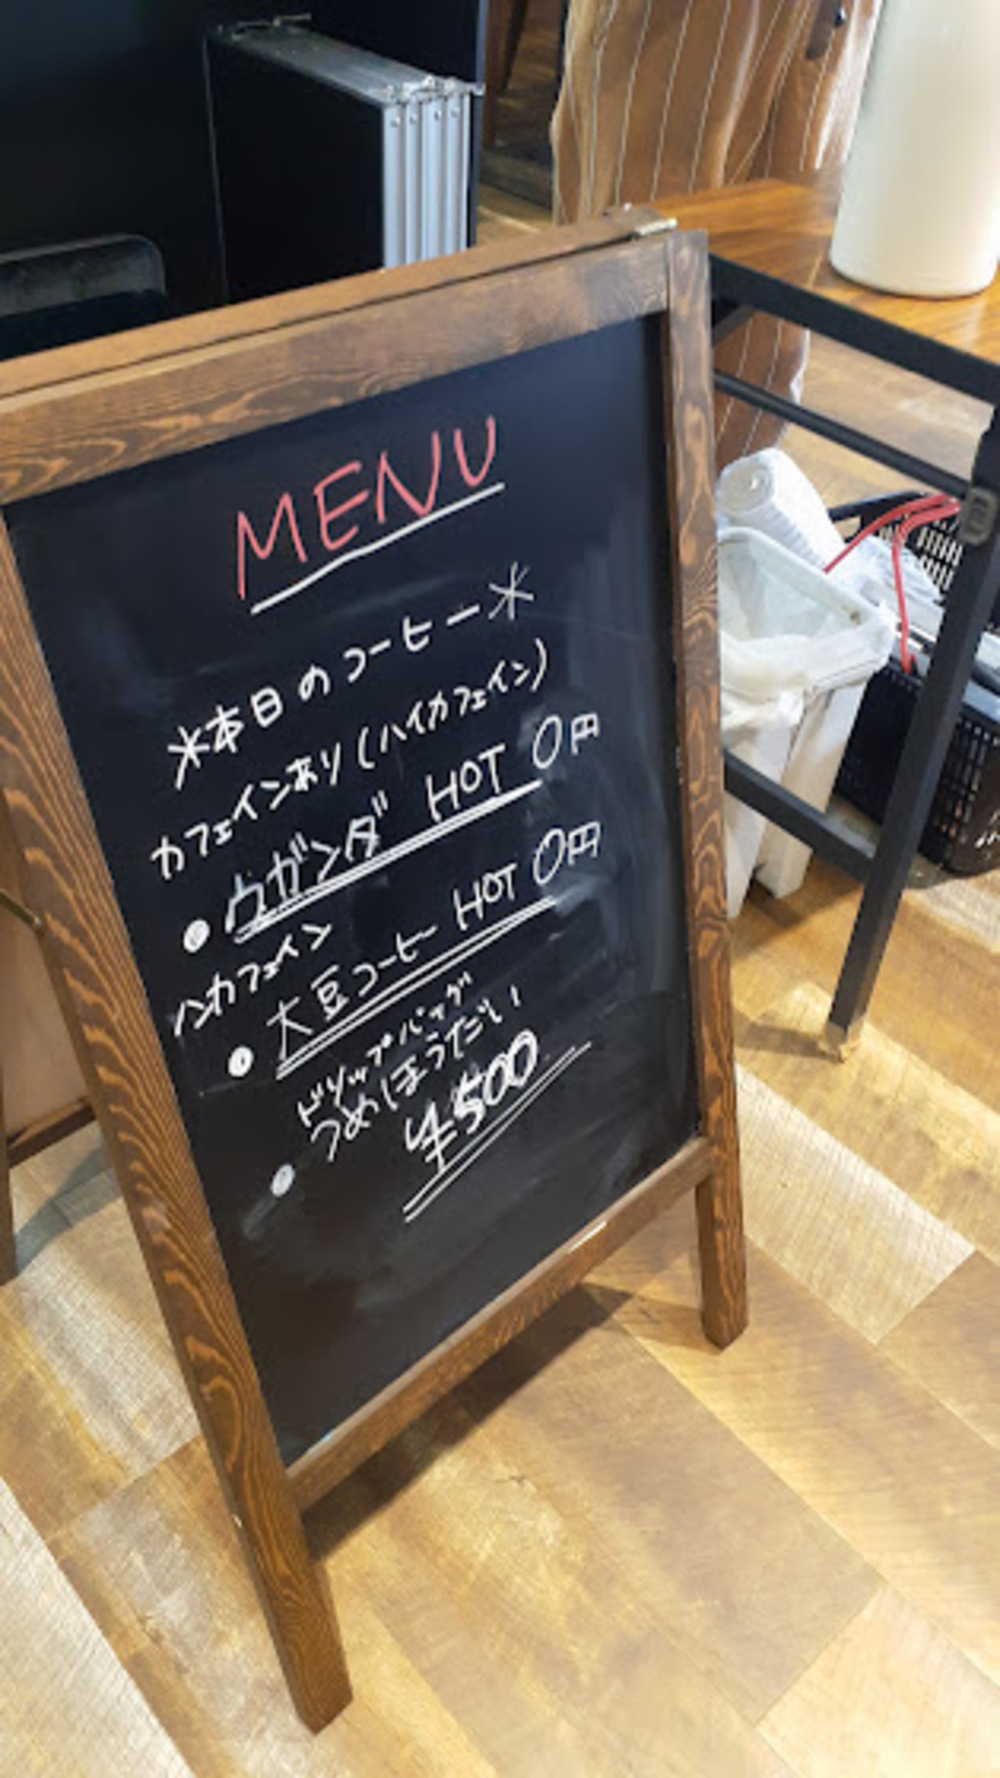 MENU
*本日のコーヒー*
カフェインあり(ハイカフェイン)
●ウガンダ HOT 0円
ノンカフェイン
●大豆コーヒー HOT 0円
ドリップバッグ
●つめほうだい!
¥500